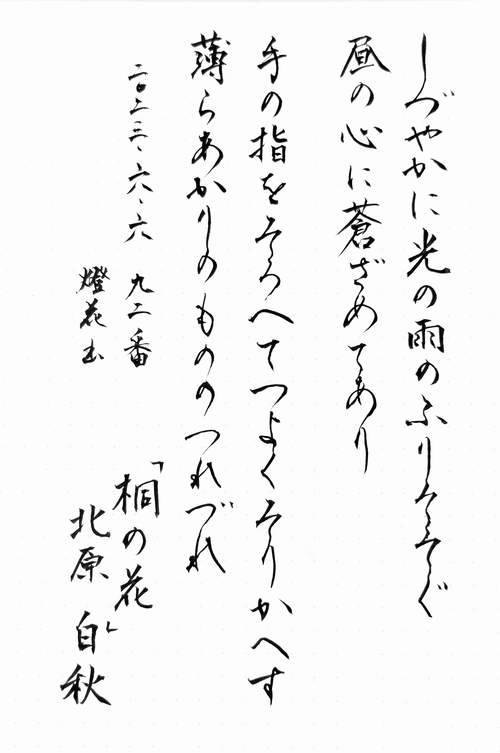 しづやかに光の雨のふりそそぐ
昼の心に蒼ざめてあり
手の指をそろへてつよくそりかへす
薄らあかりのもののつれづれ
二〇二三、六、六 九二番
燈花書
「桐の花」
北原白秋